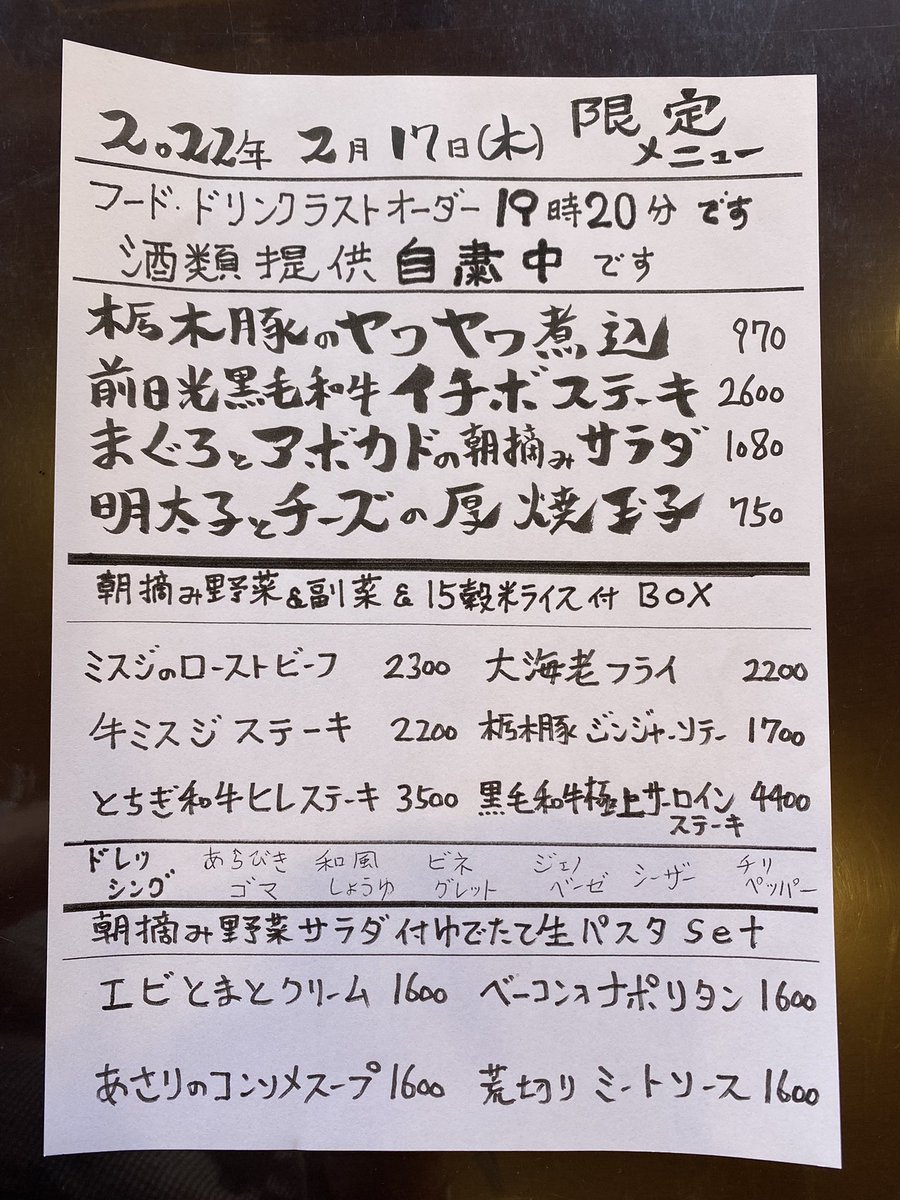 2022年 2月 17日(木) 限定メニュー
フード・ドリンクラストオーダー 19時20分 です
酒類提供 自粛中 です
栃木豚のヤワヤワ煮込 970
前日光黒毛和牛イチボステーキ 2600
まぐろとアボカドの朝摘みサラダ 1080
明太子とチーズの厚焼玉子 750
朝摘み野菜&副菜&15穀米ライス付 BOX
ミスジのローストビーフ 2300 大海老フライ 2200
牛ミスジステーキ 2200 栃木豚ジンジャーソテー 1700
とちぎ和牛ヒレステーキ 3500 黒毛和牛極上サーロインステーキ 4400
ドレッシング あらびきゴマ 和風しょうゆ ビネグレット ジェノベーゼ シーザー チリペッパー
朝摘み野菜サラダ付ゆでたて生パスタ Set
エビとまとクリーム 1600 ベーコンオナポリタン 1600
あさりのコンソメスープ 1600 荒切りミートソース 1600